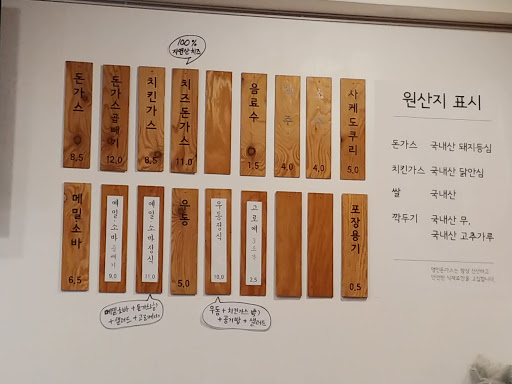 100%
자연산 치즈
돈가스 8,5
돈가스곱빼기 12,0
치킨가스 8,5
치즈돈가스 11,0
음료수 1,5
주 4,0
4,0
사케도쿠리 5,0
메밀소바 6,5
메밀소바곱빼기 9,0
메밀소바정식 11,0
우동 5,0
우동정식 10,0
고로케 2,5
포장용기 0,5
메밀소바 + 돈가스
+ 샐러드 + 고로케
우동 + 치킨가스
+ 공기밥 + 샐러드
원산지 표시
돈가스 국내산 돼지등심
치킨가스 국내산 닭안심
쌀 국내산
깍두기 국내산 무,
국내산 고추가루
명인돈가스는 항상 신선하고
안전한 식재료만을 고집합니다